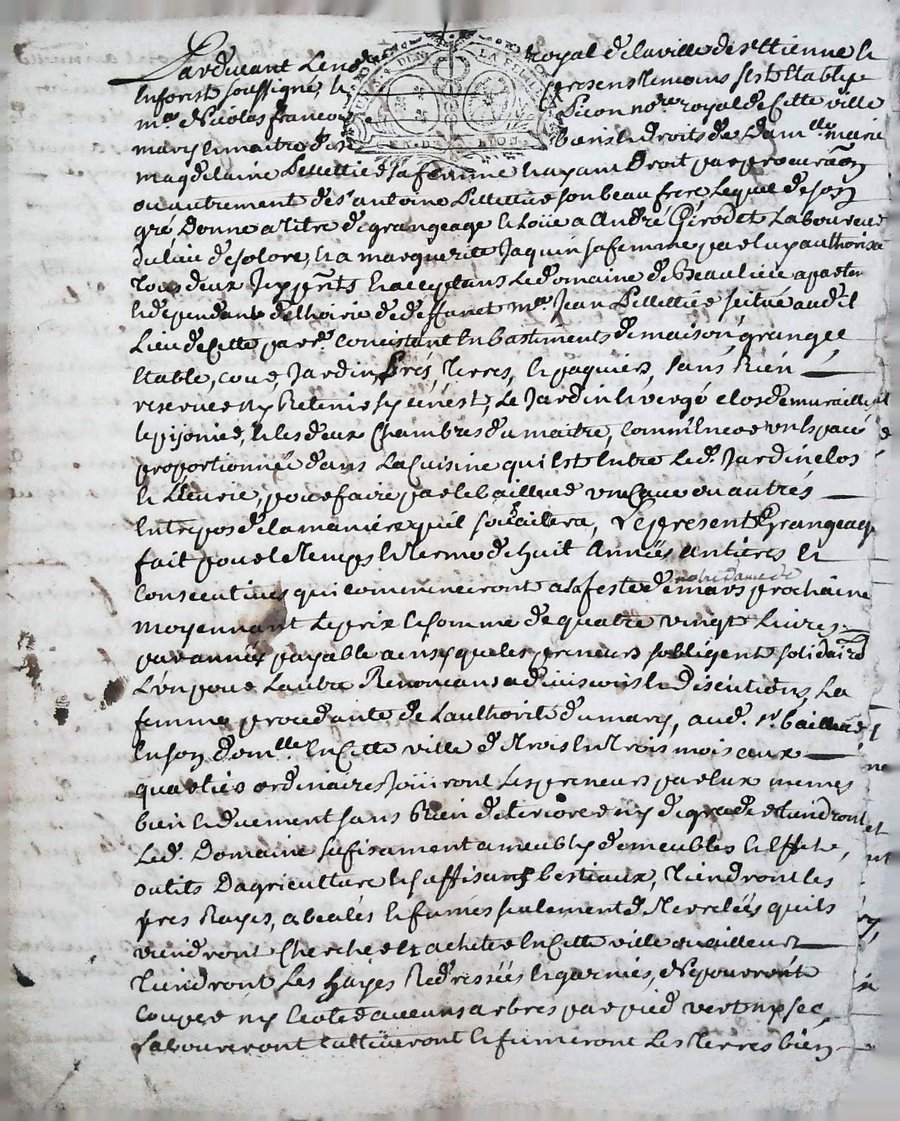 Pardevant Le no royal de la ville de st Etienne le
En forest soussigné le presens temoins sest etably
mre Nicolas françois Picon nore royal de Cette ville
mary et maitre des biens et droits de dam.lle marie
magdelaine Pellettier sa femme et ayant Droit par procuraon
ou autrement de sr antoine Pellettier son beau frere, Lequel de son
gré Donne a titre de grangeage et Loüe a André Girodet Laboureur
du lieu de solore, et a marguerite Jaquin sa femme par luy authorisée
Tous deux Icy prnts et acceptans Le domaine de Beaulieu aparten
et dependant de lhoirie de deffunct mre Jean Pellettier scitué audit
Lieu de Cette parr. Concistant En bastiments de maison, grange
Etable, cour, Jardin, Prés, Terres, et paquiers, sans Rien
reserver ny Retenir sy ce n'est, Le Jardin et vergé clos de muraille
le pijonier, et les deux Chambres du maitre, comm'encore un Espace
proportionnée dans La Cuisine qui est Entre Led. Jardin clos
et Lecurie, pour faire par le bailleur une Cave ou autres
Entrepos de la maniere qu'il souaitera, Le present Grangeage
fait pour le temps et terme de huit Années Antieres et
notre dame de
Consecutives qui commenceront a La feste de mars prochaine
moyennant Le prix et somme de quatre vingt Livres
par année payable ainsy que les preneurs sobligent solidaire
L'un pour Lautre Renoncans a division et discutions, La
femme procedante de Lauthorité du mary, aud. sr bailleur
En son domlle En Cette ville de trois En trois mois aux
quartiers ordinaires Joüiront Les preneurs par Eux memes
bien et duement sans Rien deteriorer ny degrader et tiendront
Led. Domaine sufisament ameubly de meubles et Effets,
outils Dagriculture et suffisans bestiaux, Tiendront les
pres Rayes, abealés et fumés seulement de Terrelées quils
viendront Chercher et acheter En Cette ville ou ailleurs
Tiendront Les hayes Redressées et garnies, Ne pourront
Couper ny Ecoter aucuns arbres par pied vert ny sec,
Laboureront Cultiveront et fumeront Les Terres bien